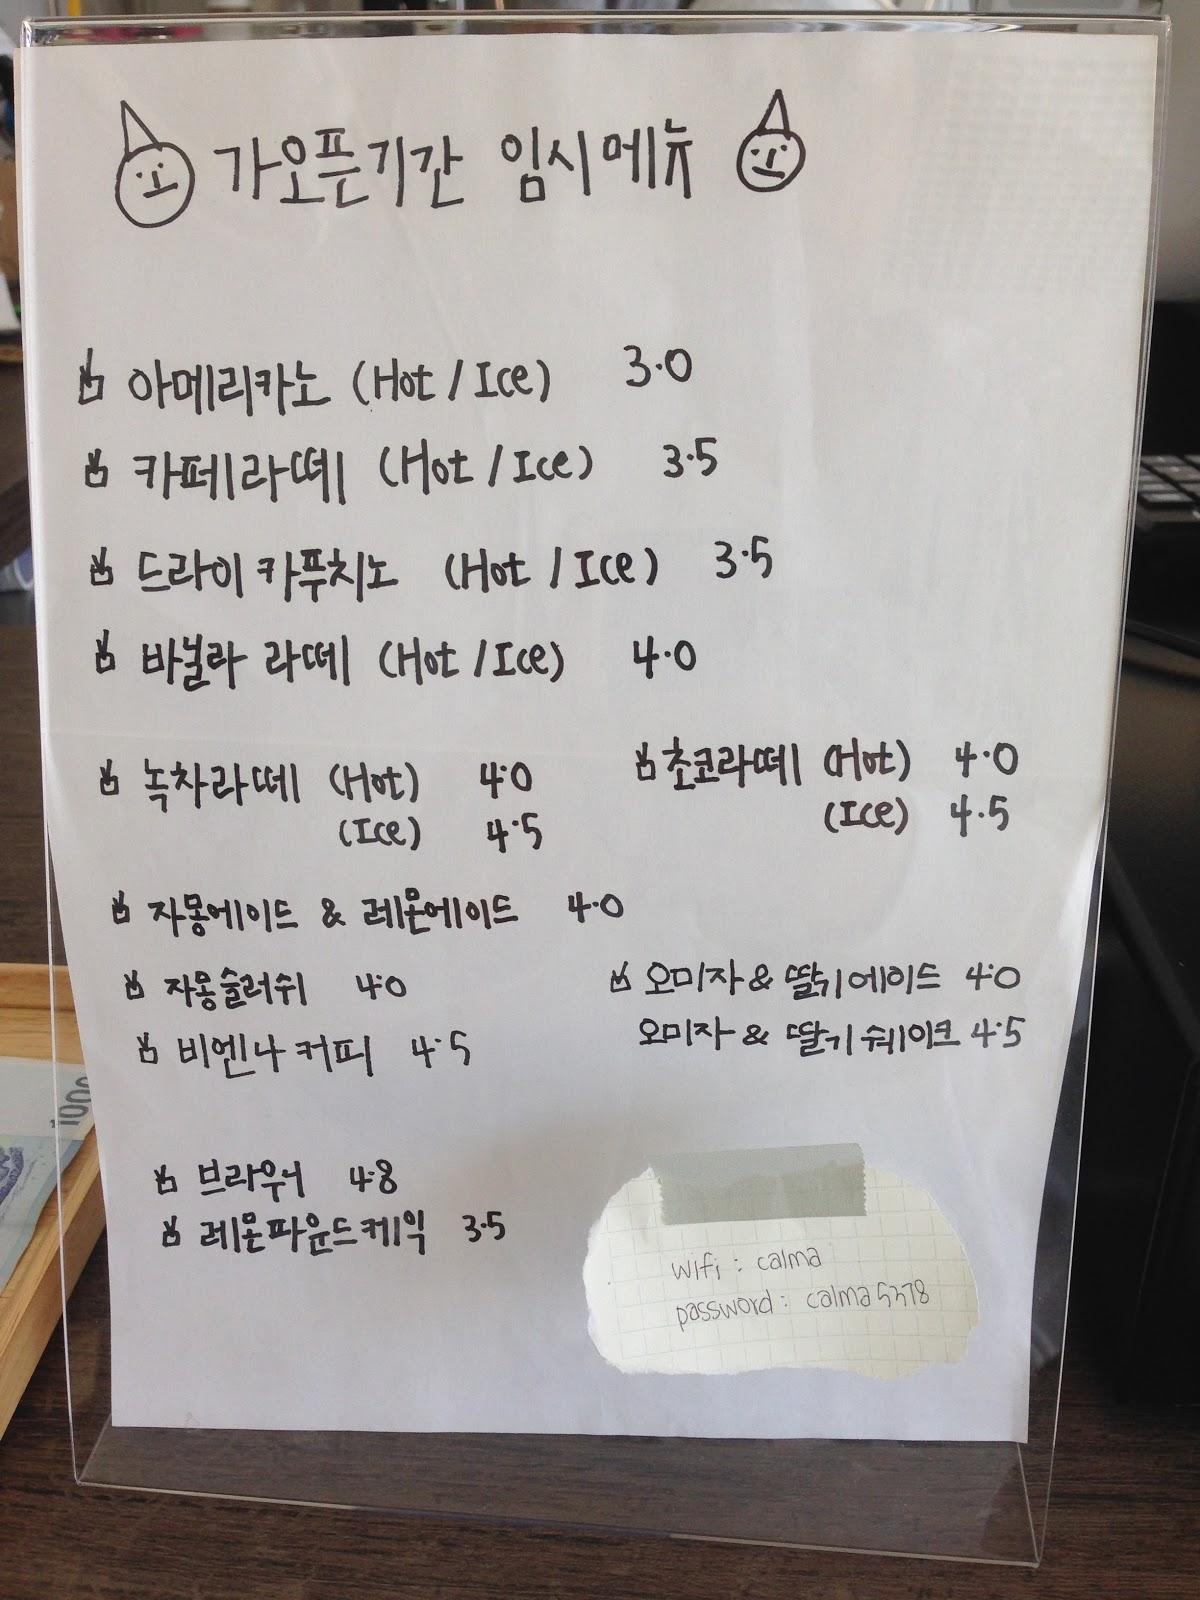 가오픈기간 임시메뉴
아메리카노 (Hot / Ice) 3.0
카페라떼 (Hot / Ice) 3.5
드라이 카푸치노 (Hot / Ice) 3.5
바닐라 라떼 (Hot / Ice) 4.0
녹차라떼 (Hot) 4.0
(Ice) 4.5
초코라떼 (Hot) 4.0
(Ice) 4.5
자몽에이드 & 레몬에이드 4.0
자몽슬러쉬 4.0
오미자 & 딸기에이드 4.0
비엔나 커피 4.5
오미자 & 딸기 쉐이크 4.5
브라우니 4.8
레몬파운드케익 3.5
wifi : calma
password : calma5378
1000